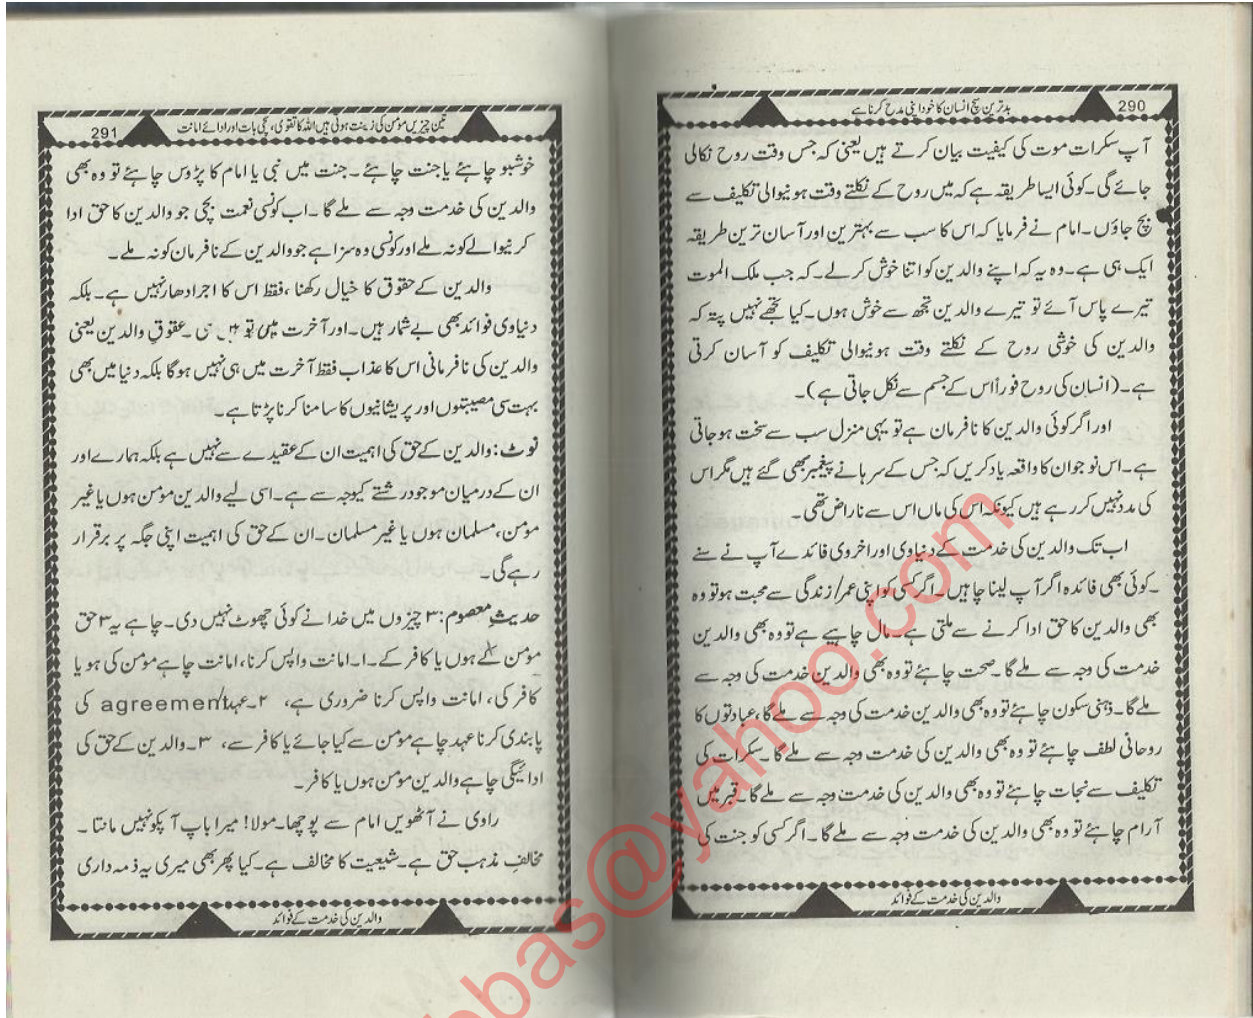 290
بدترین سچ انسان کا خود اپنی مدح کرنا ہے
آپ سکرات موت کی کیفیت بیان کرتے ہیں یعنی کہ جس وقت روح نکالی
جائے گی۔ کوئی ایسا طریقہ ہے کہ میں روح کے نکلتے وقت ہونیوالی تکلیف سے
بچ جاؤں۔ امام نے فرمایا کہ اس کا سب سے بہترین اور آسان ترین طریقہ
ایک ہی ہے۔ وہ یہ کہ اپنے والدین کو اتنا خوش کرلے۔ کہ جب ملک الموت
تیرے پاس آئے تو تیرے والدین تجھ سے خوش ہوں۔ کیا تجھے نہیں پتہ کہ
والدین کی خوشی روح کے نکلتے وقت ہونیوالی تکلیف کو آسان کرتی
ہے۔ (انسان کی روح فوراً اس کے جسم سے نکل جاتی ہے)۔
اور اگر کوئی والدین کا نافرمان ہے تو یہی منزل سب سے سخت ہوجاتی
ہے۔ اس نوجوان کا واقعہ یاد کریں کہ جس کے سرہانے پیغمبر بھی گئے ہیں مگر اس
کی مدد نہیں کر رہے ہیں کیونکہ اس کی ماں اس سے ناراض تھی۔
اب تک والدین کی خدمت کے دنیاوی اور اخروی فائدے آپ نے سنے
۔ کوئی بھی فائدہ اگر آپ لینا چاہیں۔ اگر کسی کو اپنی عمر/ زندگی سے محبت ہو تو وہ
بھی والدین کا حق ادا کرنے سے ملتی ہے۔ مال چاہیے ہے تو وہ بھی والدین
خدمت کی وجہ سے ملے گا۔ صحت چاہئے تو وہ بھی والدین خدمت کی وجہ سے
ملے گا۔ ذہنی سکون چاہئے تو وہ بھی والدین خدمت کی وجہ سے ملے گا، عبادتوں کا
روحانی لطف چاہئے تو وہ بھی والدین کی خدمت وجہ سے ملے گا۔ سکرات کی
تکلیف سے نجات چاہئے تو وہ بھی والدین کی خدمت وجہ سے ملے گا۔ قبر میں
آرام چاہئے تو وہ بھی والدین کی خدمت وجہ سے ملے گا۔ اگر کسی کو جنت کی
والدین کی خدمت کے فوائد
291
تین چیزیں مؤمن کی زینت ہوتی ہیں اللہ کا تقویٰ، سچی بات اور ادائے امانت
خوشبو چاہئے یا جنت چاہئے۔ جنت میں نبی یا امام کا پڑوس چاہئے تو وہ بھی
والدین کی خدمت وجہ سے ملے گا۔ اب کونسی نعمت بچی جو والدین کا حق ادا
کرنیوالے کو نہ ملے اور کونسی وہ سزا ہے جو والدین کے نافرمان کو نہ ملے۔
والدین کے حقوق کا خیال رکھنا، فقط اس کا اجر ادھار نہیں ہے۔ بلکہ
دنیاوی فوائد بھی بے شمار ہیں۔ اور آخرت میں تو ہیں ہی۔ عقوق والدین یعنی
والدین کی نافرمانی اس کا عذاب فقط آخرت میں ہی نہیں ہوگا بلکہ دنیا میں بھی
بہت سی مصیبتوں اور پریشانیوں کا سامنا کرنا پڑتا ہے۔
نوٹ: والدین کے حق کی اہمیت ان کے عقیدے سے نہیں ہے بلکہ ہمارے اور
ان کے درمیان موجود رشتے کیوجہ سے ہے۔ اسی لیے والدین مومن ہوں یا غیر
مومن، مسلمان ہوں یا غیر مسلمان۔ ان کے حق کی اہمیت اپنی جگہ پر برقرار
رہے گی۔
حدیثِ معصوم: ۳ چیزوں میں خدا نے کوئی چھوٹ نہیں دی۔ چاہے یہ ۳ حق
مومن کے ہوں یا کافر کے۔ ۱۔ امانت واپس کرنا، امانت چاہے مومن کی ہو یا
کافر کی، امانت واپس کرنا ضروری ہے، ۲۔ عہد/agreement کی
پابندی کرنا عہد چاہے مومن سے کیا جائے یا کافر سے، ۳۔ والدین کے حق کی
ادائیگی چاہے والدین مومن ہوں یا کافر۔
راوی نے آٹھویں امام سے پوچھا۔ مولا! میرا باپ آپکو نہیں مانتا۔
مخالفِ مذہب حق ہے۔ شیعیت کا مخالف ہے۔ کیا پھر بھی میری یہ ذمہ داری
والدین کی خدمت کے فوائد
bbas@yahoo.com